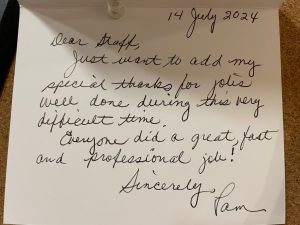 14 July 2024
Dear Staff,
Just want to add my
special thanks for jobs
well done during this very
difficult time.
Everyone did a great, fast
and professional job!
Sincerely,
Pam